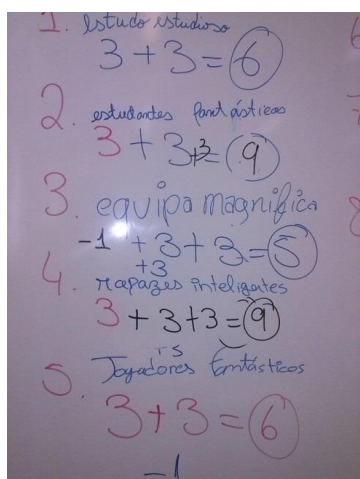 1. estudo estudioso
3 + 3 = 6
2. estudantes fantásticos
3 + 3 +3 = 9
3. equipa magnífica
-1 + 3 + 3 = 5
+3
4. rapazes inteligentes
3 + 3 + 3 = 9
5. Jogadores fantásticos
3 + 3 = 6
-1